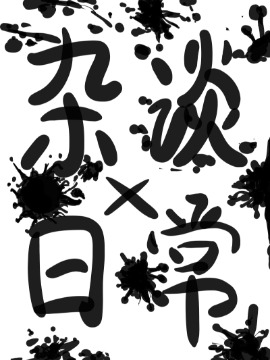 杂谈
×
日常